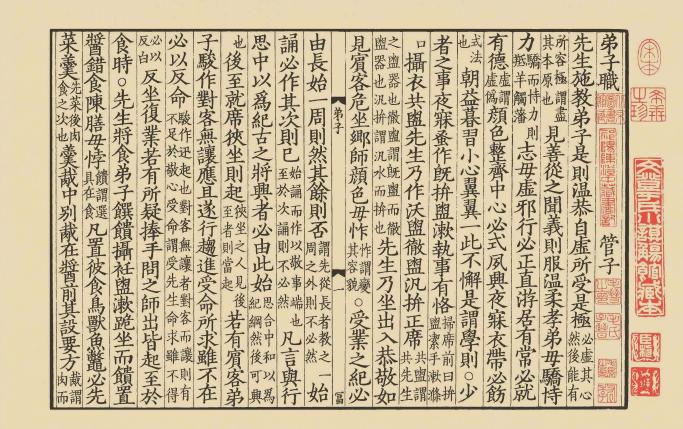 弟子職 管子
先生施教弟子是則温恭自虛所受是極必虛其心然後能有
所容極謂盡其本原也見善從之聞義則服温柔孝弟毋驕恃
力驕而恃力則羝羊觸藩志毋虛邪行必正直游居有常必就
有德虛謂虛僞顏色整齊中心必式夙興夜寐衣帶必飭
式法也朝益暮習小心翼翼一此不懈是謂學則○少
者之事夜寐蚤作既拚盥漱執事有恪掃席前曰拚盥潔手漱滌
口攝衣共盥先生乃作沃盥徹盥汎拚正席共盥謂共先生
之盥器也徹盥謂既盥而徹盥器也汎拚謂汎水而拚也先生乃坐出入恭敬如
見賓客危坐鄉師顏色毋怍怍謂變其容貌○受業之紀必
弟子
一
由長始一周則然其餘則否謂先從長者教之一周之外則不必然始
誦必作其次則已始誦而作以敬事端也至於次誦則不必然凡言與行
思中以爲紀古之將興者必由此始思合中和以爲紀綱然後可興
也後至就席狹坐則起狹坐之人見後至者則當起若有賓客弟
子駿作對客無讓應且遂行趨進受命所求雖不在
必以反命駿作迅起也對客無讓者對客而讓則有不足於敬心受命謂受先生命求雖不得
必以反白反坐復業若有所疑捧手問之師出皆起至於
食時○先生將食弟子饌饋攝衽盥漱跪坐而饋置
醬錯食陳膳毋悖饋謂選具在食凡置彼食鳥獸魚鼈必先
菜羹先菜後肉食之次也羹胾中別胾在醬前其設要方胾謂肉而